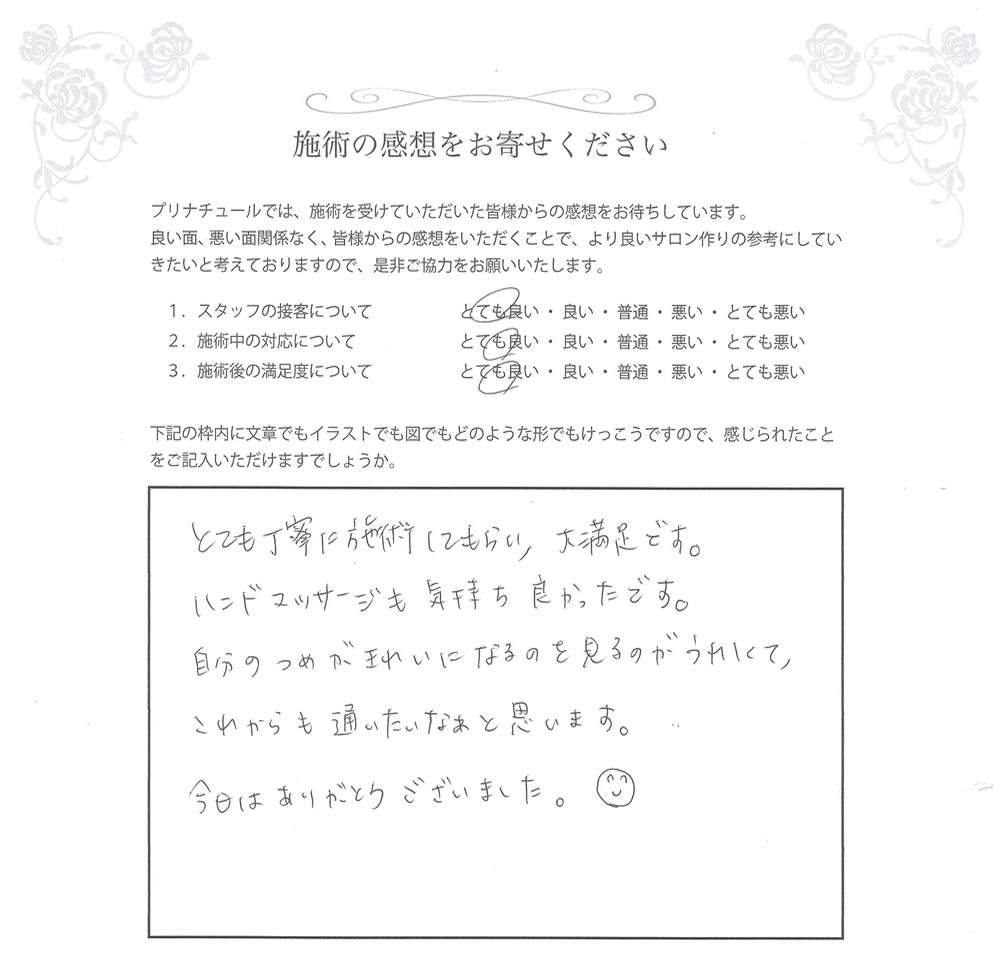 施術の感想をお寄せください
プリナチュールでは、施術を受けていただいた皆様からの感想をお待ちしています。
良い面、悪い面関係なく、皆様からの感想をいただくことで、より良いサロン作りの参考にしてい
きたいと考えておりますので、是非ご協力をお願いいたします。
1．スタッフの接客について　とても良い・良い・普通・悪い・とても悪い
2．施術中の対応について　とても良い・良い・普通・悪い・とても悪い
3．施術後の満足度について　とても良い・良い・普通・悪い・とても悪い
下記の枠内に文章でもイラストでも図でもどのような形でもけっこうですので、感じられたこと
をご記入いただけますでしょうか。
とても丁寧に施術してもらい、大満足です。
ハンドマッサージも気持ち良かったです。
自分のつめがきれいになるのを見るのがうれしくて、
これからも通いたいなぁと思います。
今日はありがとうございました。